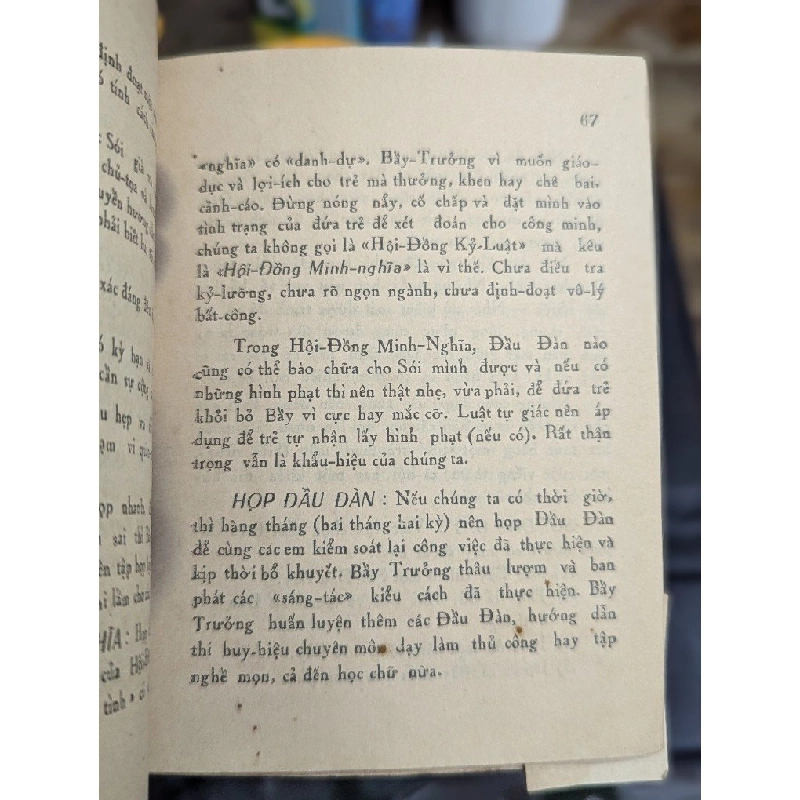 định đoạt
tính cách
Sói già
chủ-tọa và
phải biết
xác đáng
kỳ bạn
cần sự
hẹp
vì
họp nhanh
sai thì
tập họp
làm cho
NGHĨA :
của Hội-Đ
tình » có
67
«nghĩa» có «danh-dự». Bầy-Trưởng vì muốn giáo-
dục và lợi-ích cho trẻ mà thưởng, khen hay chê bai,
cảnh-cáo. Đừng nóng nẩy, cố chấp và đặt mình vào
tình trạng của đứa trẻ để xét đoán cho công minh,
chúng ta không gọi là «Hội-Đồng Kỷ-Luật» mà kêu
là «Hội-Đồng Minh-nghĩa» là vì thế. Chưa điều tra
kỷ-lưỡng, chưa rõ ngọn ngành, chưa định-đoạt vô-lý
bất-công.
Trong Hội-Đồng Minh-Nghĩa, Đầu Đàn nào
cũng có thể bào chữa cho Sói mình được và nếu có
những hình phạt thì nên thật nhẹ, vừa phải, để đứa trẻ
khỏi bỏ Bầy vì cực hay mắc cỡ. Luật tự giác nên áp
dụng để trẻ tự nhận lấy hình phạt (nếu có). Rất thận
trọng vẫn là khẩu-hiệu của chúng ta.
HỌP ĐẦU ĐÀN : Nếu chúng ta có thời giờ,
thì hàng tháng (hai tháng hai kỳ) nên họp Đầu Đàn
để cùng các em kiểm soát lại công việc đã thực hiện và
kịp thời bổ khuyết. Bầy Trưởng thâu lượm và ban
phát các «sáng-tác» kiểu cách đã thực hiện. Bầy
Trưởng huấn luyện thêm các Đầu Đàn, hướng dẫn
thi huy-hiệu chuyên môn dạy làm thủ công hay tập
nghề mọn, cả đến học chữ nữa.